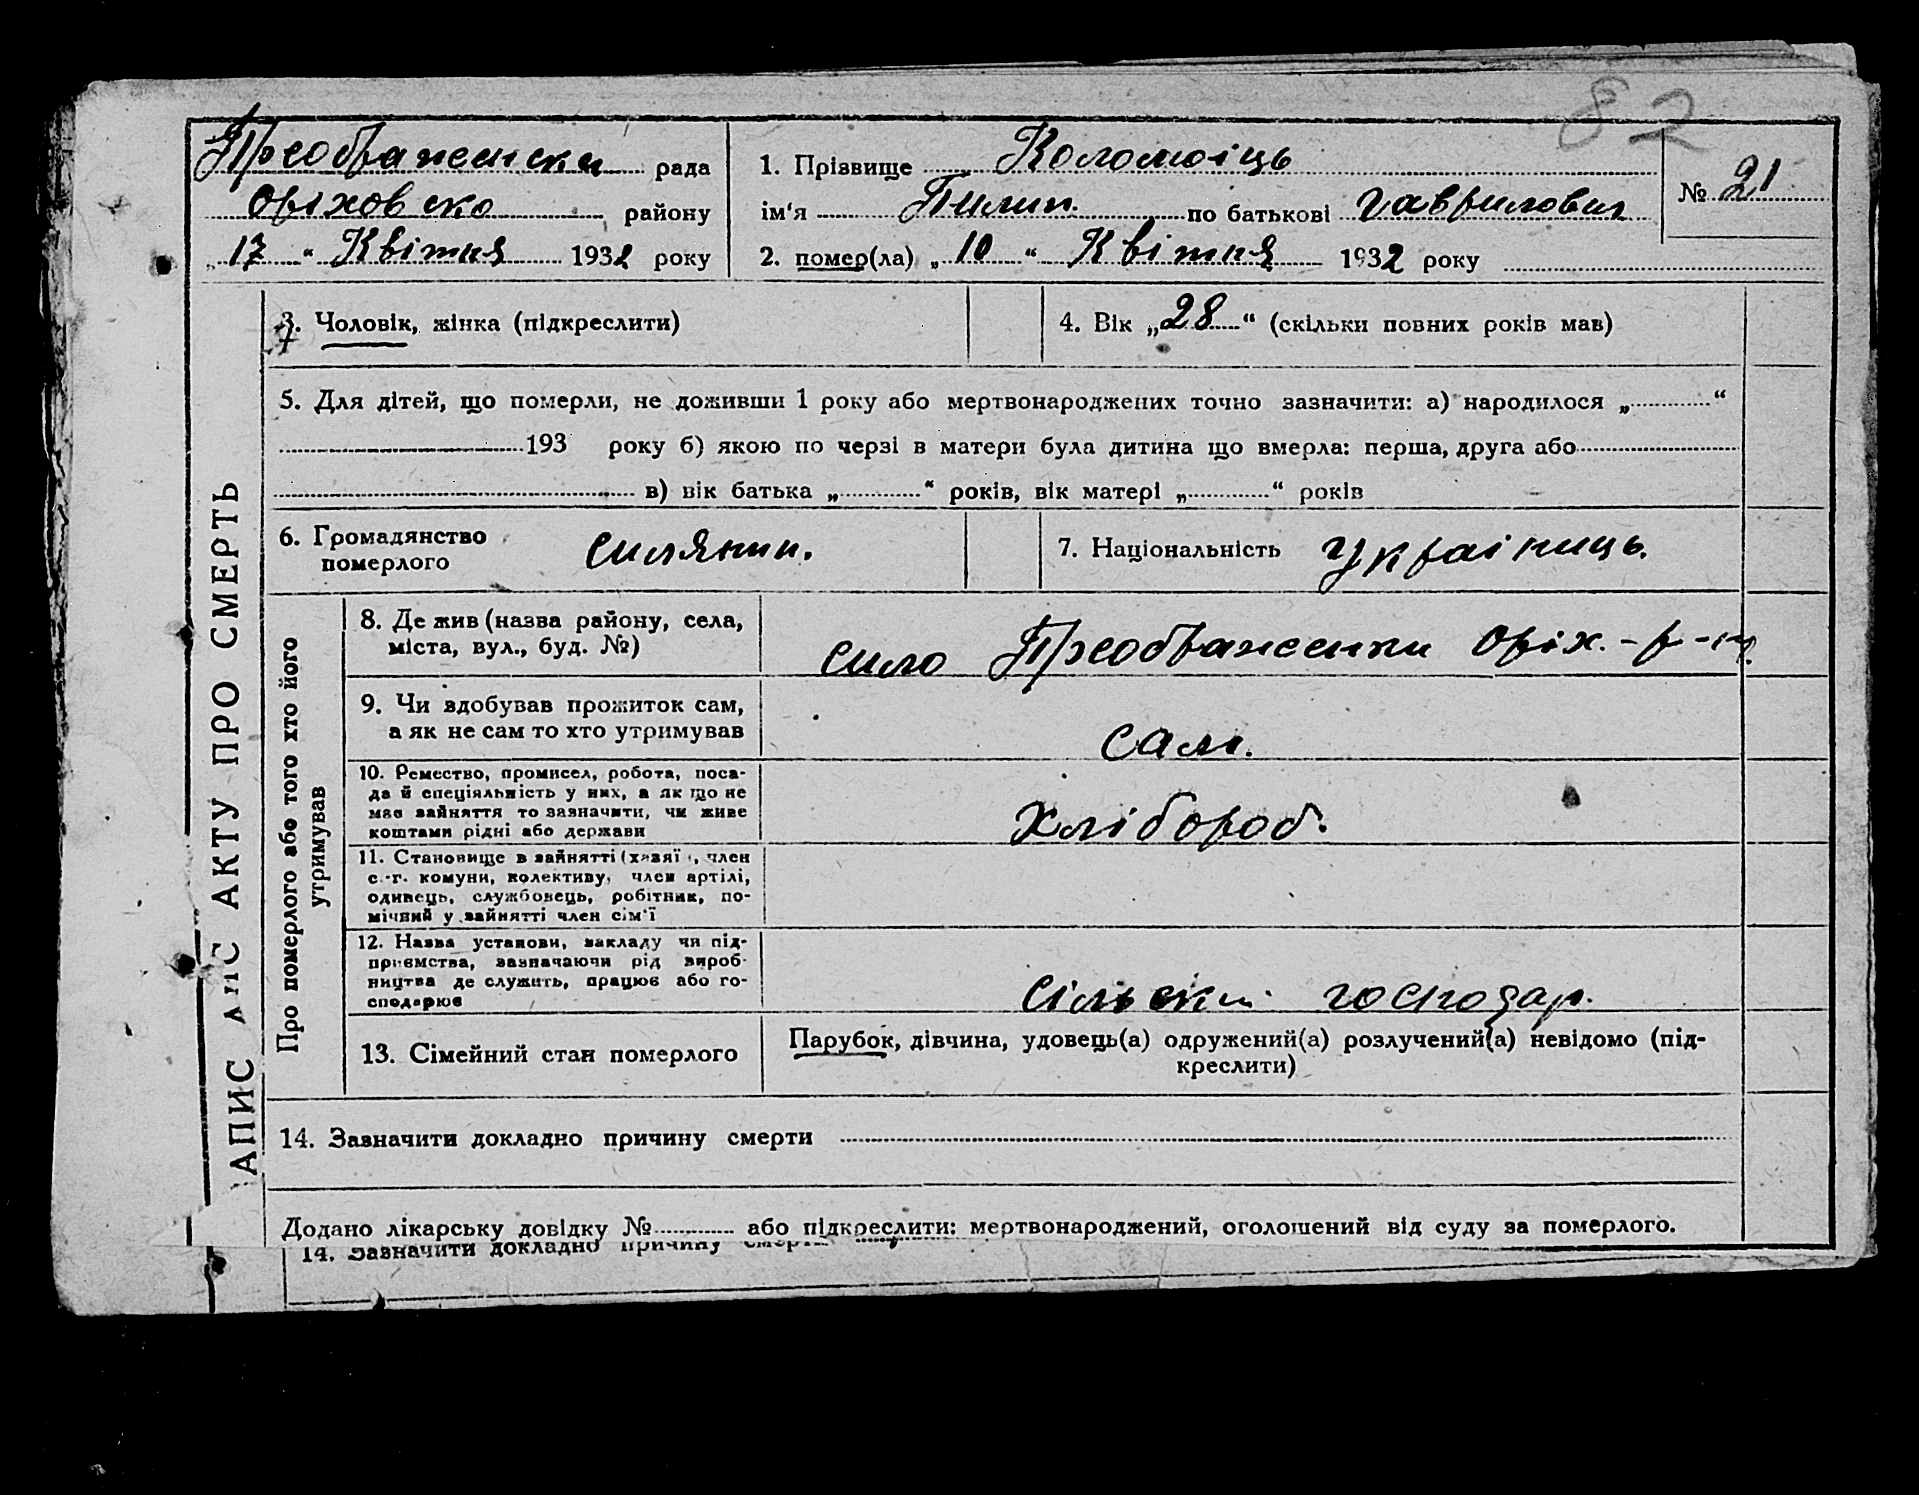 82
Преображенски рада
Оріховско району
„17“ Квітня 1932 року
1. Прізвище Коломоіць
ім‘я Пилип по батькові Гаврилович
2. помер(ла) „10“ Квітня 1932 року
№ 21
ЗАПИС АКТУ ПРО СМЕРТЬ
3. Чоловік, жінка (підкреслити)
4. Вік „28“ (скільки повних років мав)
5. Для дітей, що померли, не доживши 1 року або мертвонароджених точно зазначити: а) народилося „ “
193 року б) якою по черзі в матери була дитина що вмерла: перша, друга або
в) вік батька „ “ років, вік матері „ “ років
6. Громадянство
померлого
силянин.
7. Національність Украіниць.
Про померлого або того хто його
утримував
8. Де жив (назва району, села,
міста, вул., буд. №)
сило Преображенки Оріх.-р-н.
9. Чи здобував прожиток сам,
а як не сам то хто утримував
сам.
10. Ремество, промисел, робота, поса-
да й спеціяльність у них, а як що не
має зайняття то зазначити, чи живе
коштами рідні або держави
хлібороб.
11. Становище в зайнятті (хазяї , член
с.-г. комуни, колективу, член артілі,
одинець, службовець, робітник, по-
мічний у зайнятті член сім‘ї
12. Назва установи, закладу чи під-
приємства, зазначаючи рід вироб-
ництва де служить, працює або го-
сподарює
сільски господар.
13. Сімейний стан померлого
Парубок, дівчина, удовець(а) одружений(а) розлучений(а) невідомо (під-
креслити)
14. Зазначити докладно причину смерти
Додано лікарську довідку № або підкреслити: мертвонароджений, оголошений від суду за померлого.
14. Зазначити докладно причину смерти